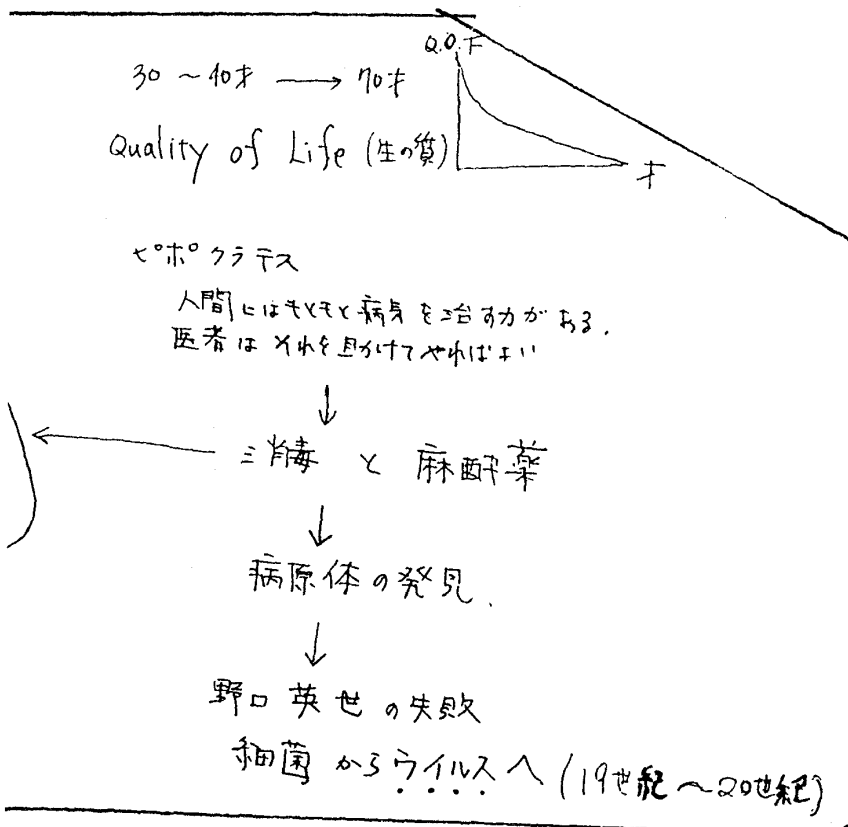 Q.O.F
30 ~ 40才 → 70才
Quality of Life (生の質)
才
ヒ°ポクラテス
人間にはもともと病気を治す力がある.
医者はそれを助けてやればよい
↓
← 消毒 と 麻酔薬
↓
病原体の発見.
↓
野口英世の失敗
細菌からウイルスへ (19世紀～20世紀)